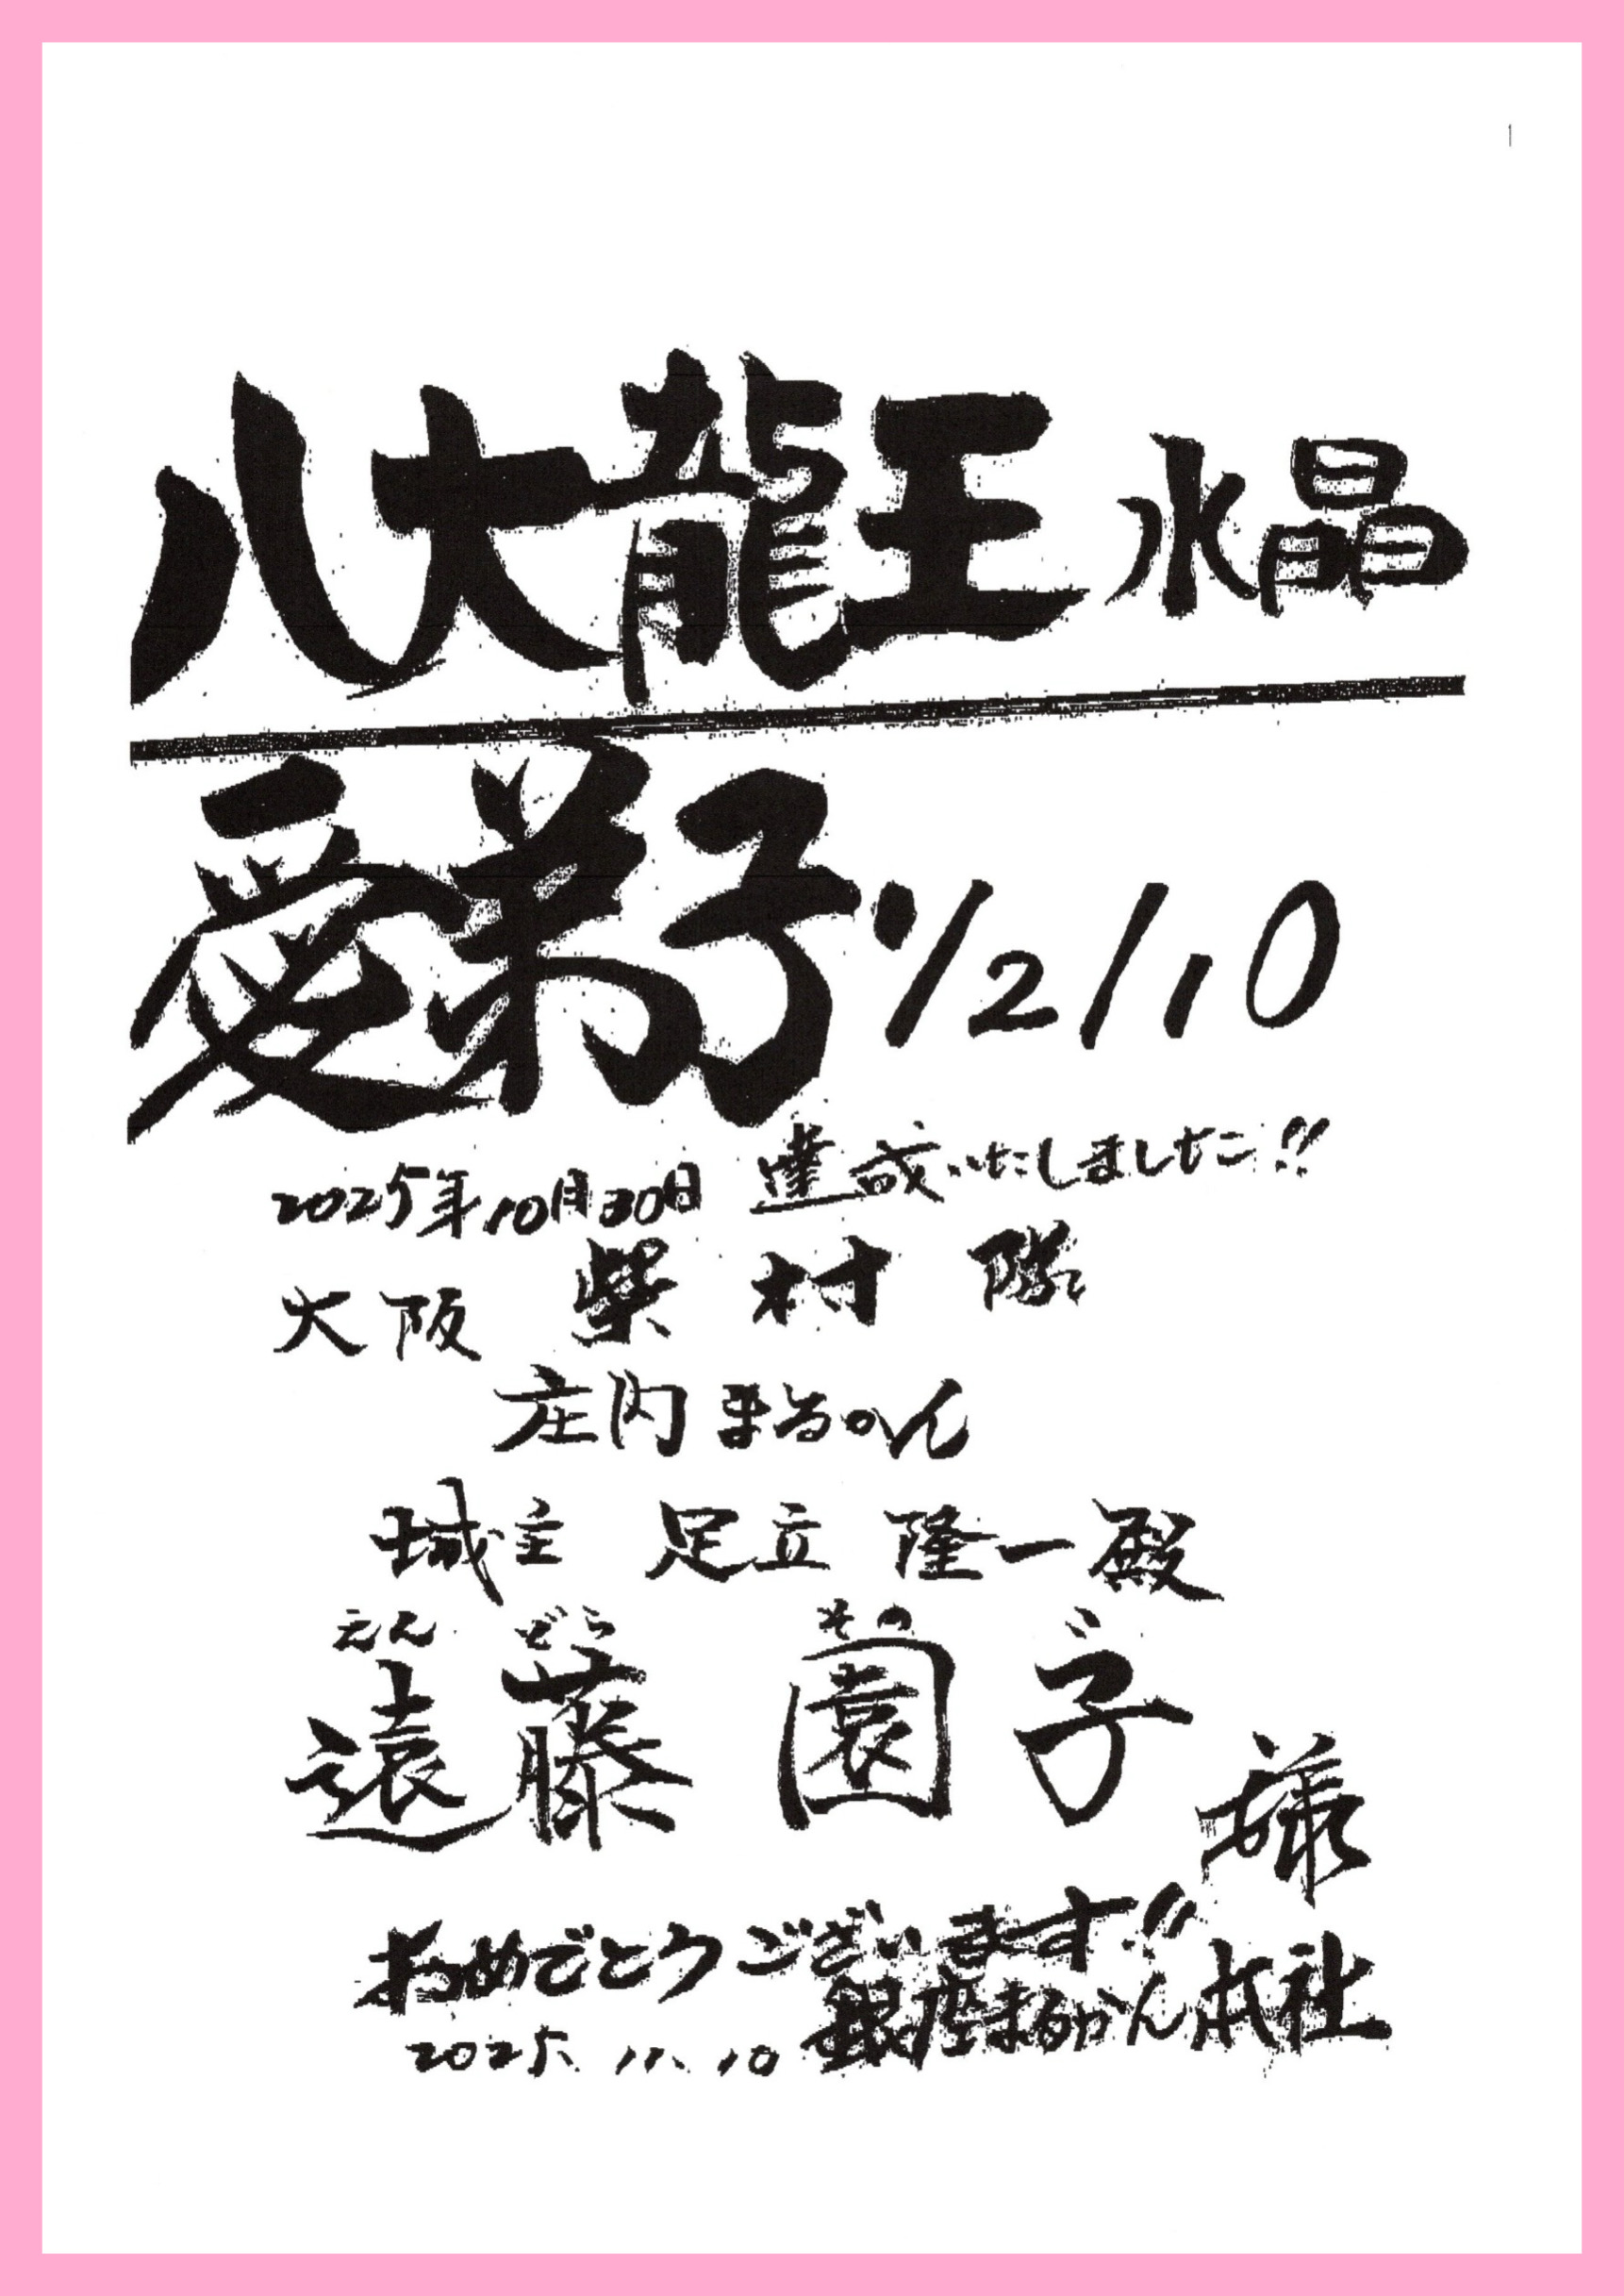 八大龍王水晶
愛弟子!!/2/10
2025年10月30日 達成いたしました!!
大阪 柴村隊
庄内まるかん
城主 足立隆一殿
えん どう その こ
遠藤 園子 様
おめでとうございます!!
2025.11.10 銀座まるかん本社